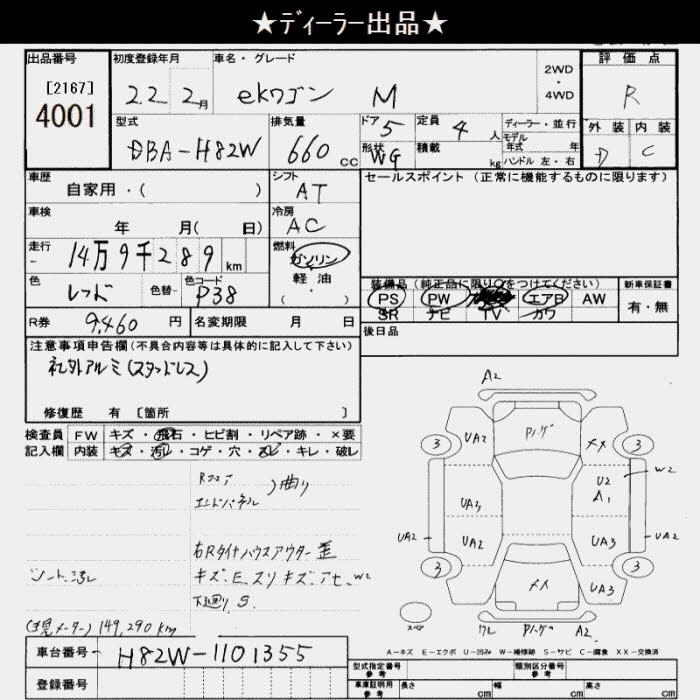 ★ディーラー出品★
出品番号
[2167]
4001
初度登録年月
22 2月
車名・グレード
ekワゴン M
2WD
・
4WD
評価点
R
外装 内装
D C
型式
DBA-H82W
排気量
660 cc
ドア 5
形状 WG
定員 4 人
積載 kg
ディーラー・並行
モデル年式 年
ハンドル 左・右
車歴
自家用・( )
シフト
AT
セールスポイント (正常に機能するものに限ります)
車検
年 月( 日)
冷房
AC
走行
14万9千289 km
燃料
ガソリン
軽油
( ・ )
色
レッド
色替-
色コード
P38
装備品 (純正品に限り○をつけてください)
PS PW エアB AW
SR ナビ TV カワ
新車保証書
有・無
R券 9,460 円
名変期限 月 日
後日品
注意事項申告欄 (不具合内容等は具体的に記入して下さい)
社外アルミ(スタッドレス)
修復歴 有 [箇所 ]
検査員記入欄
FW キズ・飛石・ヒビ割・リペア跡・×要
内装 キズ・汚レ・コゲ・穴・スレ・キレ・破レ
Rフロア
エンドパネル
)曲り
右Rタイヤハウスアウター歪
キズ、E、スリキズ、アセ、W2
下廻り S
シート汚レ
(現メーター) 149,290 km
A2
Pハゲ
UA2
メメ
3
3
U2
A1
W2
UA3
UA2
UA2
UA3
UA2
3
3
メメ
UA3
スペア
ワレ Pハゲ A2
A-キズ E-エクボ U-凹み W-補修跡 S-サビ C-腐食 XX-交換済
車台番号 H82W-1101355
登録番号
型式指定番号
参考
類別区分番号
参考
車庫証明用
参考
長さ cm
幅 cm
高さ cm